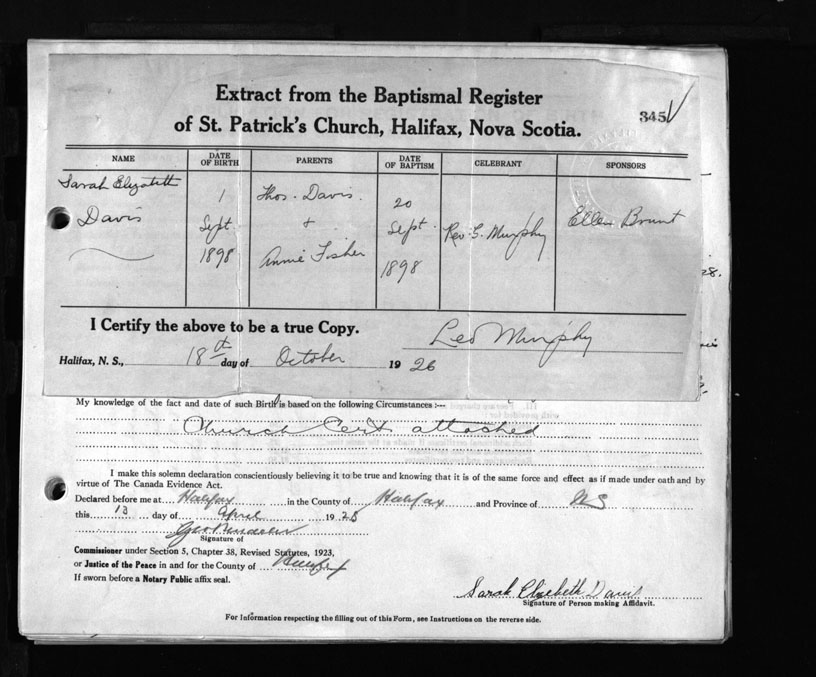 Extract from the Baptismal Register
of St. Patrick's Church, Halifax, Nova Scotia.
345
NAME DATE OF BIRTH PARENTS DATE OF BAPTISM CELEBRANT SPONSORS
Sarah Elizabeth Davis
1 Sept 1898
Thos. Davis + Annie Fisher
20 Sept. 1898
Rev. G. Murphy
Ellen Brunt
28.
I Certify the above to be a true Copy.
Leo Murphy
Halifax, N. S., 18th day of October 1926
My knowledge of the fact and date of such Birth is based on the following Circumstances :—
Church Cert. attached
I make this solemn declaration conscientiously believing it to be true and knowing that it is of the same force and effect as if made under oath and by
virtue of The Canada Evidence Act.
Declared before me at Halifax in the County of Halifax and Province of NS
this 13 day of April 1928
Signature of
Commissioner under Section 5, Chapter 38, Revised Statutes, 1923,
or Justice of the Peace in and for the County of Halifax
If sworn before a Notary Public affix seal.
Sarah Elizebeth Davis
Signature of Person making Affidavit.
For Information respecting the filling out of this Form, see Instructions on the reverse side.